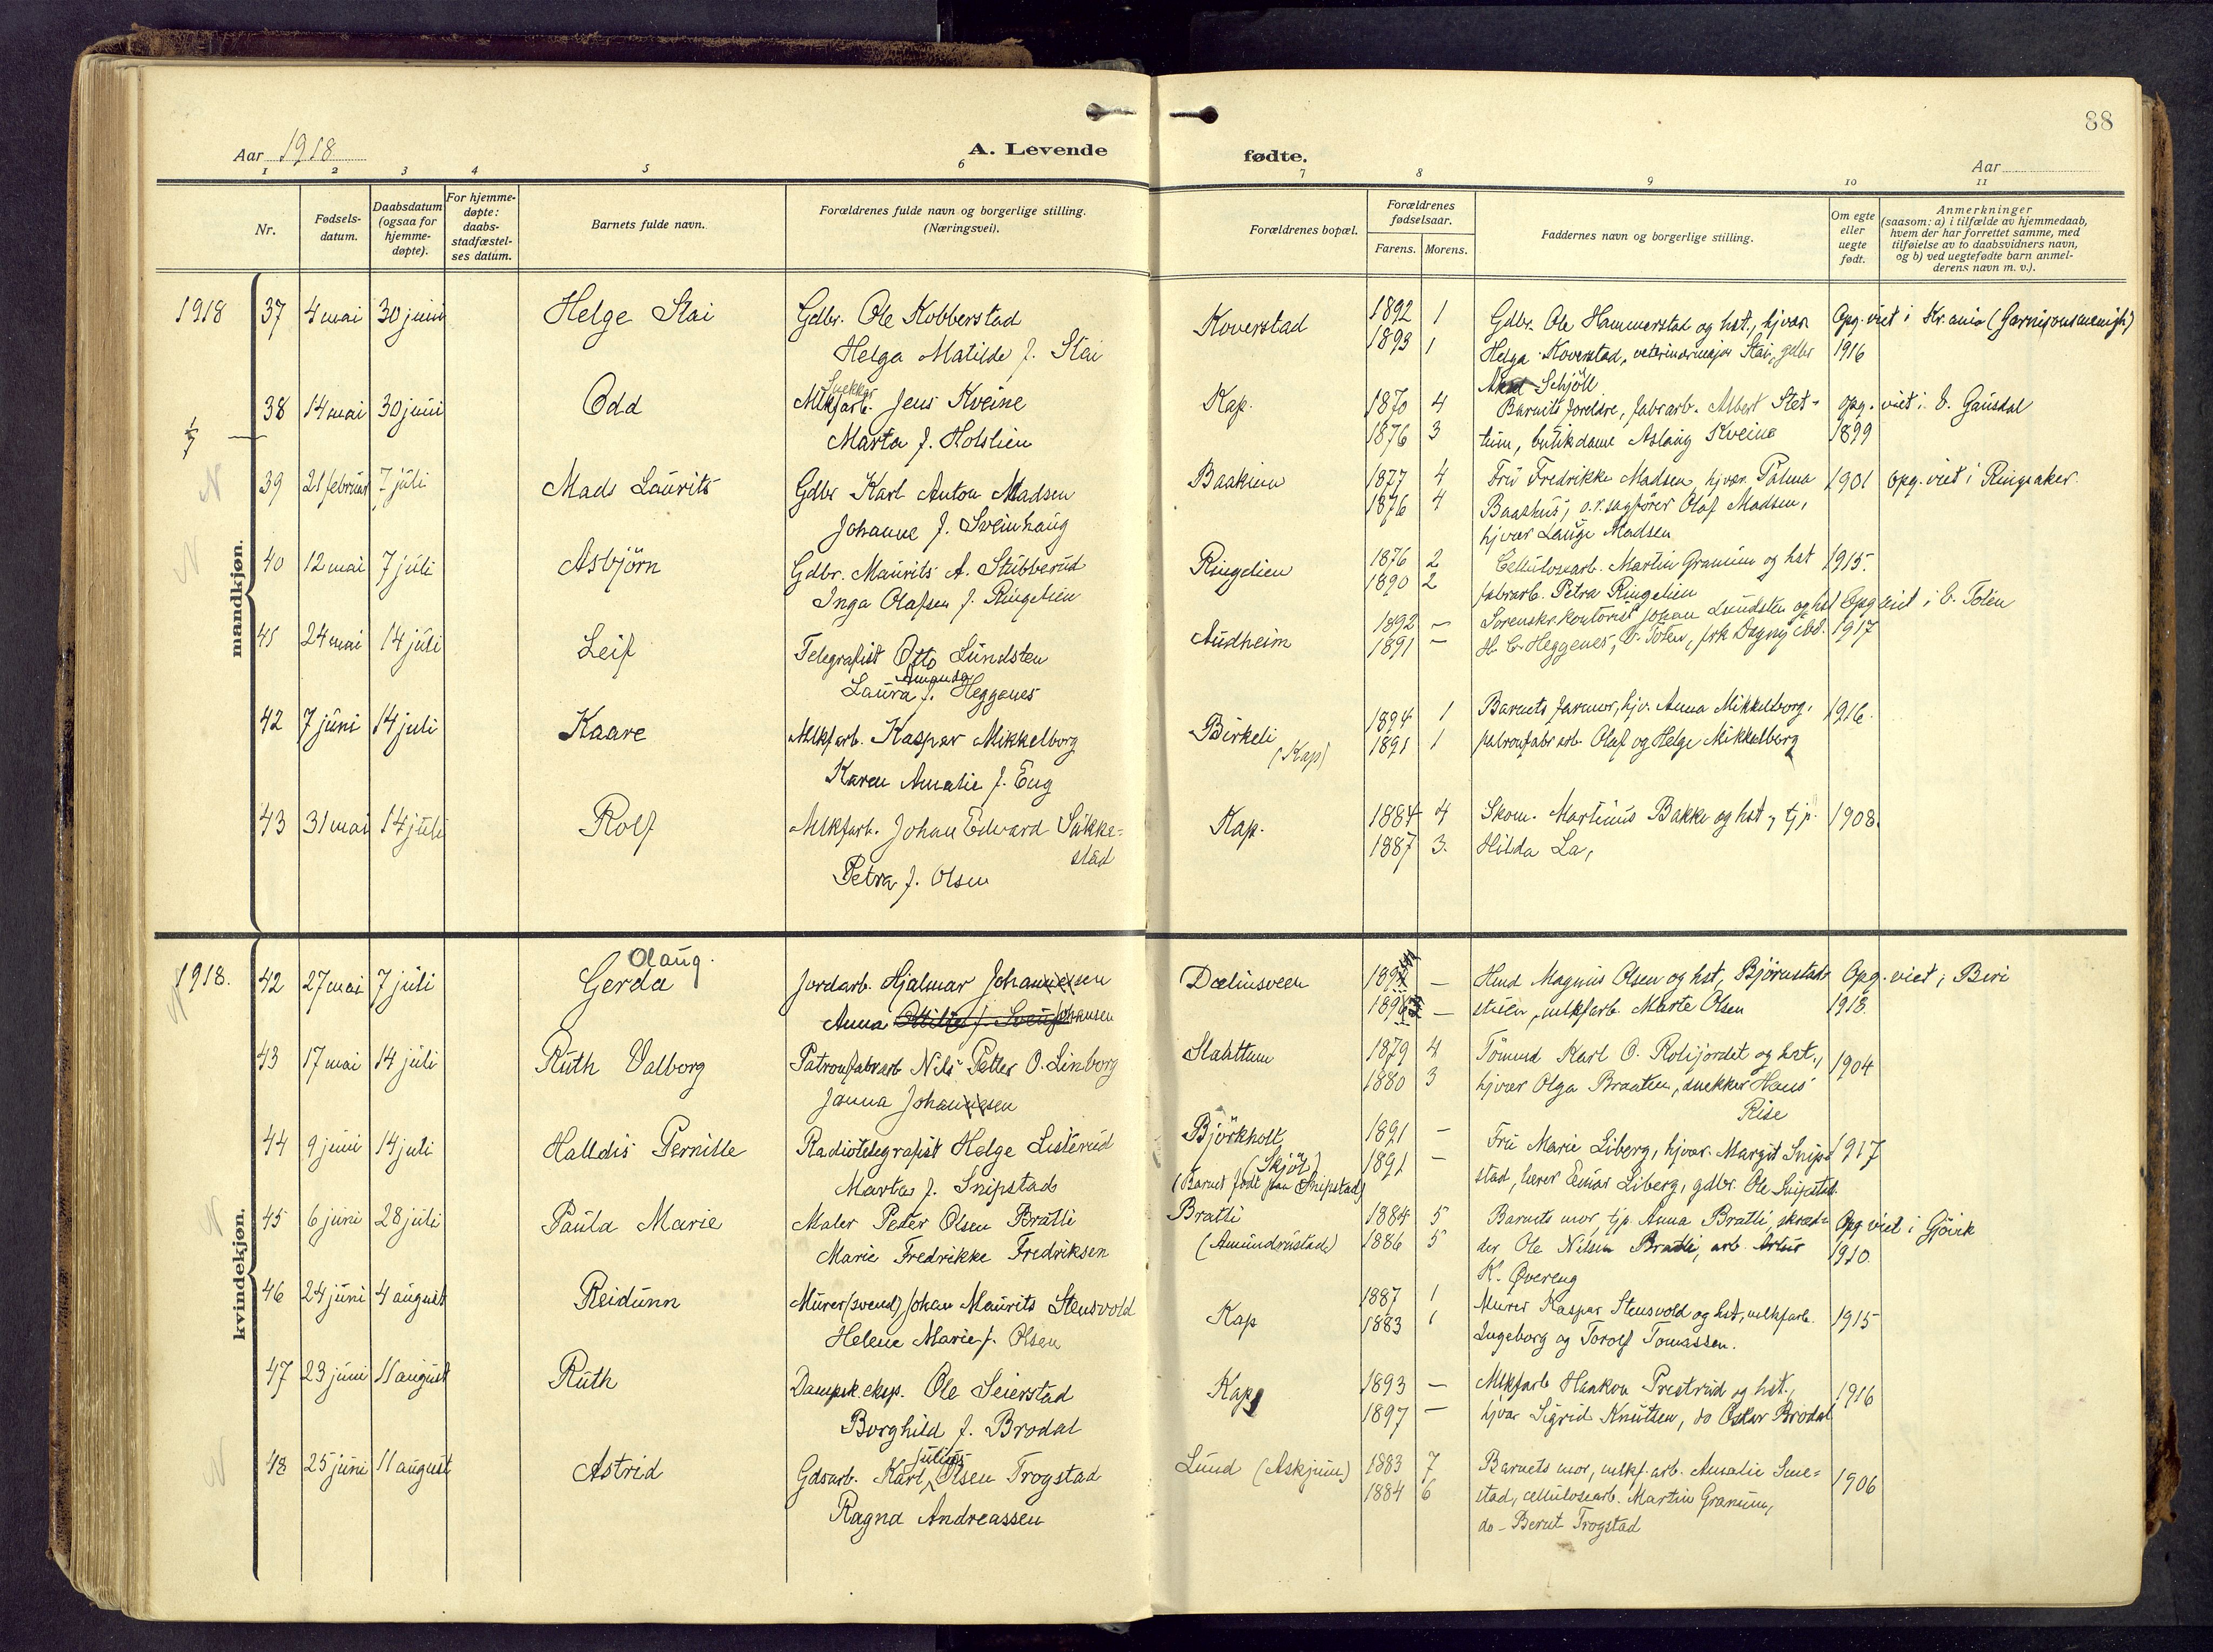 88
Aar 1918
A. Levende
fødte.
Aar
1 2 3 4 5 6 7 8 9 10 11
Nr.
Fødselsdatum.
Daabsdatum (ogsaa for hjemmedøpte).
For hjemmedøpte: daabsstadfæstelses datum.
Barnets fulde navn.
Forældrenes fulde navn og borgerlige stilling. (Næringsvei).
Forældrenes bopæl.
Forældrenes fødselsaar.
Farens. Morens.
Faddernes navn og borgerlige stilling.
Om egte eller uegte født.
Anmerkninger (saasom: a) i tilfælde av hjemmedaab, hvem der har forrettet samme, med tilføielse av to daabsvidners navn, og b) ved uegtefødte barn anmelderens navn m. v.).
mandkjøn.
1918 37 4 mai 30 juni Helge Stai Gdbr. Ole Kobberstad Koverstad 1892 1 Gdbr. Ole Hammerstad og hst., hjvær Opg. viet i Kr.ania (Garnisonsmenigh)
Helga Matilde f. Stai 1893 1 Helga Koverstad, veterinærmajor Stai, gdbr 1916
Schjöll
38 14 mai 30 juni Odd Snekker Mlkfarb. Jens Kveine Kap. 1870 4 Barnets foreldre, fabrarb. Albert Stet- opg. viet i Ö. Gausdal
Marta f. Holslien 1876 3 tum, butikdame Aslaug Kveine 1899
39 21 februar 7 juli Mads Laurits Gdbr Karl Anton Madsen Baakinn 1877 4 Fru Fredrikke Madsen, hjvær Palma 1901 opg. viet i Ringsaker.
Johanne f. Sveinhaug 1876 4 Baashus, o.r.sagförer Olaf Madsen,
hjvær Lauge Madsen
40 12 mai 7 juli Asbjörn Gdbr. Maurits A. Stubberud Ringelien 1876 2 Cellulosearb. Martin Granum og hst 1915.
Inga Olafsen f. Ringelien 1890 2 fabrarb. Petra Ringelien
41 24 mai 14 juli Leif Telegrafist Otto Lundsten Audheim 1892 — Sorenskr.kontorist Johan Lundsten og hst Opg viet i Ö. Toten
Laura Amanda f. Heggenes 1891 — Heggenes, Ö. Toten, frk Dagny ibd. 1917
42 7 juni 14 juli Kaare Mlkfarb. Kaspar Mikkelborg Birkeli 1894 1 Barnets farmor, hjv. Anna Mikkelborg, 1916.
Karen Amalie f. Eng (Kap) 1891 1 patronfabrarb. Olaf og Helge Mikkelborg
43 31 mai 14 juli Rolf Mlkfarb. Johan Edvard Sükke- Kap. 1884 4 Skom. Martinus Bakke og hst, tjp. 1908.
stad 1887 3. Hilda La,
Petra f. Olsen
kvindekjøn.
1918. 42 27 mai 7 juli Gerda Olaug. Jordarb. Hjalmar Johansen Dælinsveen — Hmd Magnus Olsen og hst, Björnstad- Opg. viet i Biri
Anna Johansen — stuen, mlkfarb. Marte Olsen 1918.
43 17 mai 14 juli Ruth Valborg Patronfabrarb Nils Petter O. Linborg Slaattum 1879 4 Tömmd Karl O. Rolijordet og hst.,
Janna Johansen 1880 3 hjvær Olga Braaten, snekker Hans 1904
Rise
44 9 juni 14 juli Halldis Pernille Radiotelegrafist Helge Listerud Björkholt 1891 — Fru Marie Liberg, hjvær. Margit Snip- 1917
Marta f. Snipstad (Skjöl) 1891 — stad, lærer Einar Liberg, gdbr. Ole Snipstad.
(Barnet født paa Snipstad)
45 6 juni 28 juli Paula Marie Maler Peter Olsen Bratli Bratli 1884 5 Barnets mor, tjp. Anna Bratli, skræd- Opg viet i Gjövik
Marie Fredrikke Fredriksen (Amundrustad) 1886 5 der Ole Nilsen Bratli, arb. Artur 1910.
K. Övereng
46 24 juni 4 august Reidunn Murer(svend) Johan Maurits Stensvold Kap 1887 1 Murer Kaspar Stensvold og hst, mlkfarb. 1915
Helene Marie f. Olsen 1883 1 Ingeborg og Torolf Tomassen.
47 23 juni 11 august Ruth Dampsk.eksp. Ole Seierstad Kap 1893 — Mlkfarb Haakon Prestrud og hst., 1916
Borghild f. Brodal 1897 — hjvær Sigrid Knutsen, do Oskar Brodal
48 25 juni 11 august Astrid Gdsarb. Karl Julius Olsen Trogstad Lund (Askjum) 1883 7 Barnets mor, mlkf.arb. Amalie Sme-
Ragna Andreassen 1884 6 stad, cellulosearb. Martin Granum, 1906
do - Bernt Trogstad